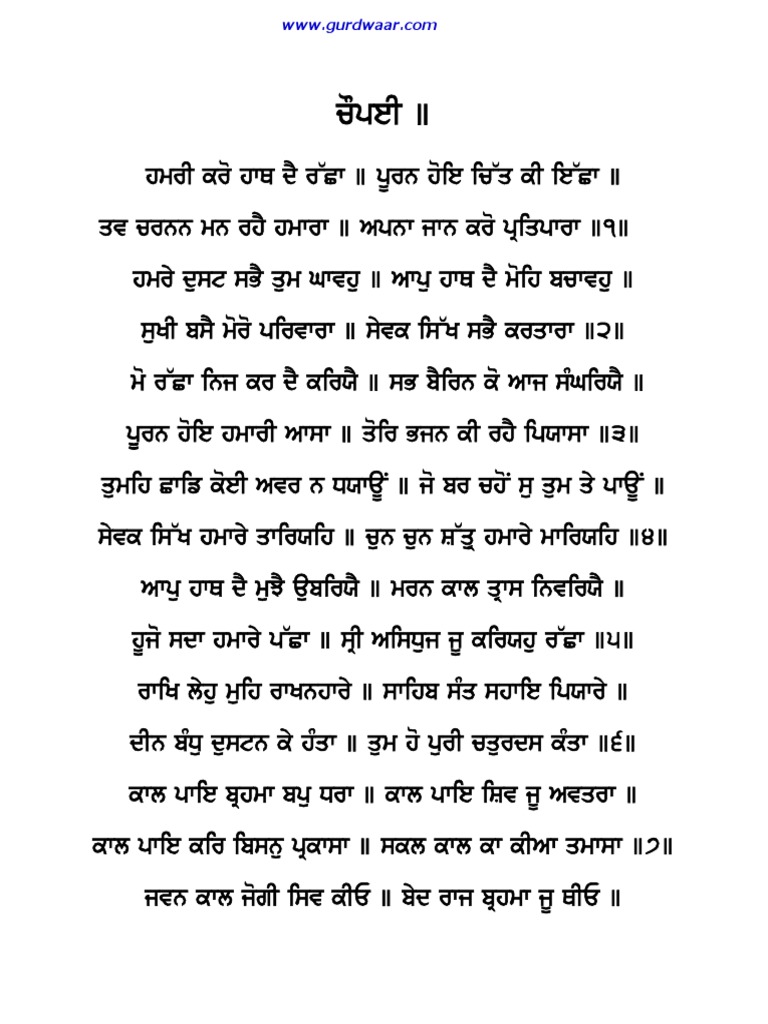 www.gurdwaar.com
ਚੌਪਈ ॥
ਹਮਰੀ ਕਰੋ ਹਾਥ ਦੈ ਰੱਛਾ ॥ ਪੂਰਨ ਹੋਇ ਚਿੱਤ ਕੀ ਇੱਛਾ ॥
ਤਵ ਚਰਨਨ ਮਨ ਰਹੈ ਹਮਾਰਾ ॥ ਅਪਨਾ ਜਾਨ ਕਰੋ ਪ੍ਰਤਿਪਾਰਾ ॥੧॥
ਹਮਰੇ ਦੁਸਟ ਸਭੈ ਤੁਮ ਘਾਵਹੁ ॥ ਆਪੁ ਹਾਥ ਦੈ ਮੋਹਿ ਬਚਾਵਹੁ ॥
ਸੁਖੀ ਬਸੈ ਮੋਰੋ ਪਰਿਵਾਰਾ ॥ ਸੇਵਕ ਸਿੱਖ ਸਭੈ ਕਰਤਾਰਾ ॥੨॥
ਮੋ ਰੱਛਾ ਨਿਜ ਕਰ ਦੈ ਕਰਿਯੈ ॥ ਸਭ ਬੈਰਿਨ ਕੋ ਆਜ ਸੰਘਰਿਯੈ ॥
ਪੂਰਨ ਹੋਇ ਹਮਾਰੀ ਆਸਾ ॥ ਤੋਰਿ ਭਜਨ ਕੀ ਰਹੈ ਪਿਯਾਸਾ ॥੩॥
ਤੁਮਹਿ ਛਾਡਿ ਕੋਈ ਅਵਰ ਨ ਧਯਾਊਂ ॥ ਜੋ ਬਰ ਚਹੋਂ ਸੁ ਤੁਮ ਤੇ ਪਾਊਂ ॥
ਸੇਵਕ ਸਿੱਖ ਹਮਾਰੇ ਤਾਰਿਯਹਿ ॥ ਚੁਨ ਚੁਨ ਸ਼ੱਤ੍ਰੁ ਹਮਾਰੇ ਮਾਰਿਯਹਿ ॥੪॥
ਆਪੁ ਹਾਥ ਦੈ ਮੁਝੈ ਉਬਰਿਯੈ ॥ ਮਰਨ ਕਾਲ ਤ੍ਰਾਸ ਨਿਵਰਿਯੈ ॥
ਹੂਜੋ ਸਦਾ ਹਮਾਰੇ ਪੱਛਾ ॥ ਸ੍ਰੀ ਅਸਿਧੁਜ ਜੂ ਕਰਿਯਹੁ ਰੱਛਾ ॥੫॥
ਰਾਖਿ ਲੇਹੁ ਮੁਹਿ ਰਾਖਨਹਾਰੇ ॥ ਸਾਹਿਬ ਸੰਤ ਸਹਾਇ ਪਿਯਾਰੇ ॥
ਦੀਨ ਬੰਧੁ ਦੁਸਟਨ ਕੇ ਹੰਤਾ ॥ ਤੁਮ ਹੋ ਪੁਰੀ ਚਤੁਰਦਸ ਕੰਤਾ ॥੬॥
ਕਾਲ ਪਾਇ ਬ੍ਰਹਮਾ ਬਪੁ ਧਰਾ ॥ ਕਾਲ ਪਾਇ ਸ਼ਿਵ ਜੂ ਅਵਤਰਾ ॥
ਕਾਲ ਪਾਇ ਕਰਿ ਬਿਸਨੁ ਪ੍ਰਕਾਸਾ ॥ ਸਕਲ ਕਾਲ ਕਾ ਕੀਆ ਤਮਾਸਾ ॥੭॥
ਜਵਨ ਕਾਲ ਜੋਗੀ ਸਿਵ ਕੀਓ ॥ ਬੇਦ ਰਾਜ ਬ੍ਰਹਮਾ ਜੂ ਥੀਓ ॥